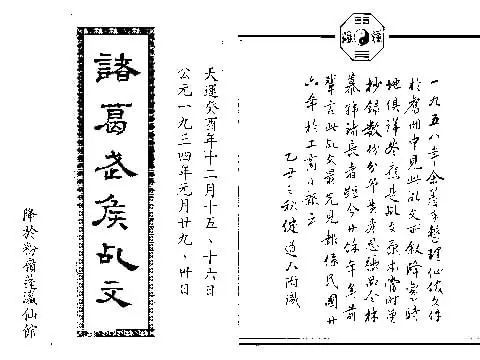 一九五八年余着手整理仙館文件
於舊冊中見此乩文叙降鸞時
地俱詳疑是乩文原本當時曾
抄錄數份分黃思林
諸長者距今廿餘年矣前
輩言此乩文最先見報係民國廿
六年於工商日報云
乙丑之秋健道人丙識
天運癸酉年十二月十五、十六日
公元一九三四年元月廿九、卅日
諸葛武侯乩文
降於粉嶺蓬瀛仙館